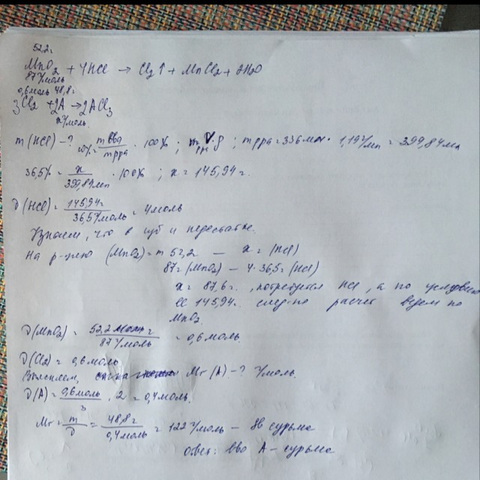 52,2
MnO2 + 4HCl → Cl2↑ + MnCl2 + 2H2O
87 г/моль
0,6 моль 48,8
3Cl2 + 2A → 2ACl3
x г/моль
m(HCl) - ? ω% = m вва / m рра · 100% ; m = V · ρ ; m рра = 336 мл · 1,19 г/мл = 399,84 мл
36,5% = x / 399,84 мл · 100% ; x = 145,94 г.
ν(HCl) = 145,94г / 36,5 г/моль = 4 моль
Узнаем, что в изб и недостатке.
На р-цию (MnO2) = m 52,2 — x г (HCl)
87 г (MnO2) — 4·36,5 г (HCl)
x = 87,6 г. потребуется HCl, а по условию
145,94. след-но расчет ведем по
MnO2.
ν(MnO2) = 52,2 г / 87 г/моль = 0,6 моль.
ν(Cl2) = 0,6 моль
Вычислим, Mr (A) - ? г/моль.
ν(A) = 0,6 моль · 2 = 0,4 моль.
3
Mr = m / ν = 48,8 г / 0,4 моль = 122 г/моль - Sb сурьма
ответ: вво А - сурьма